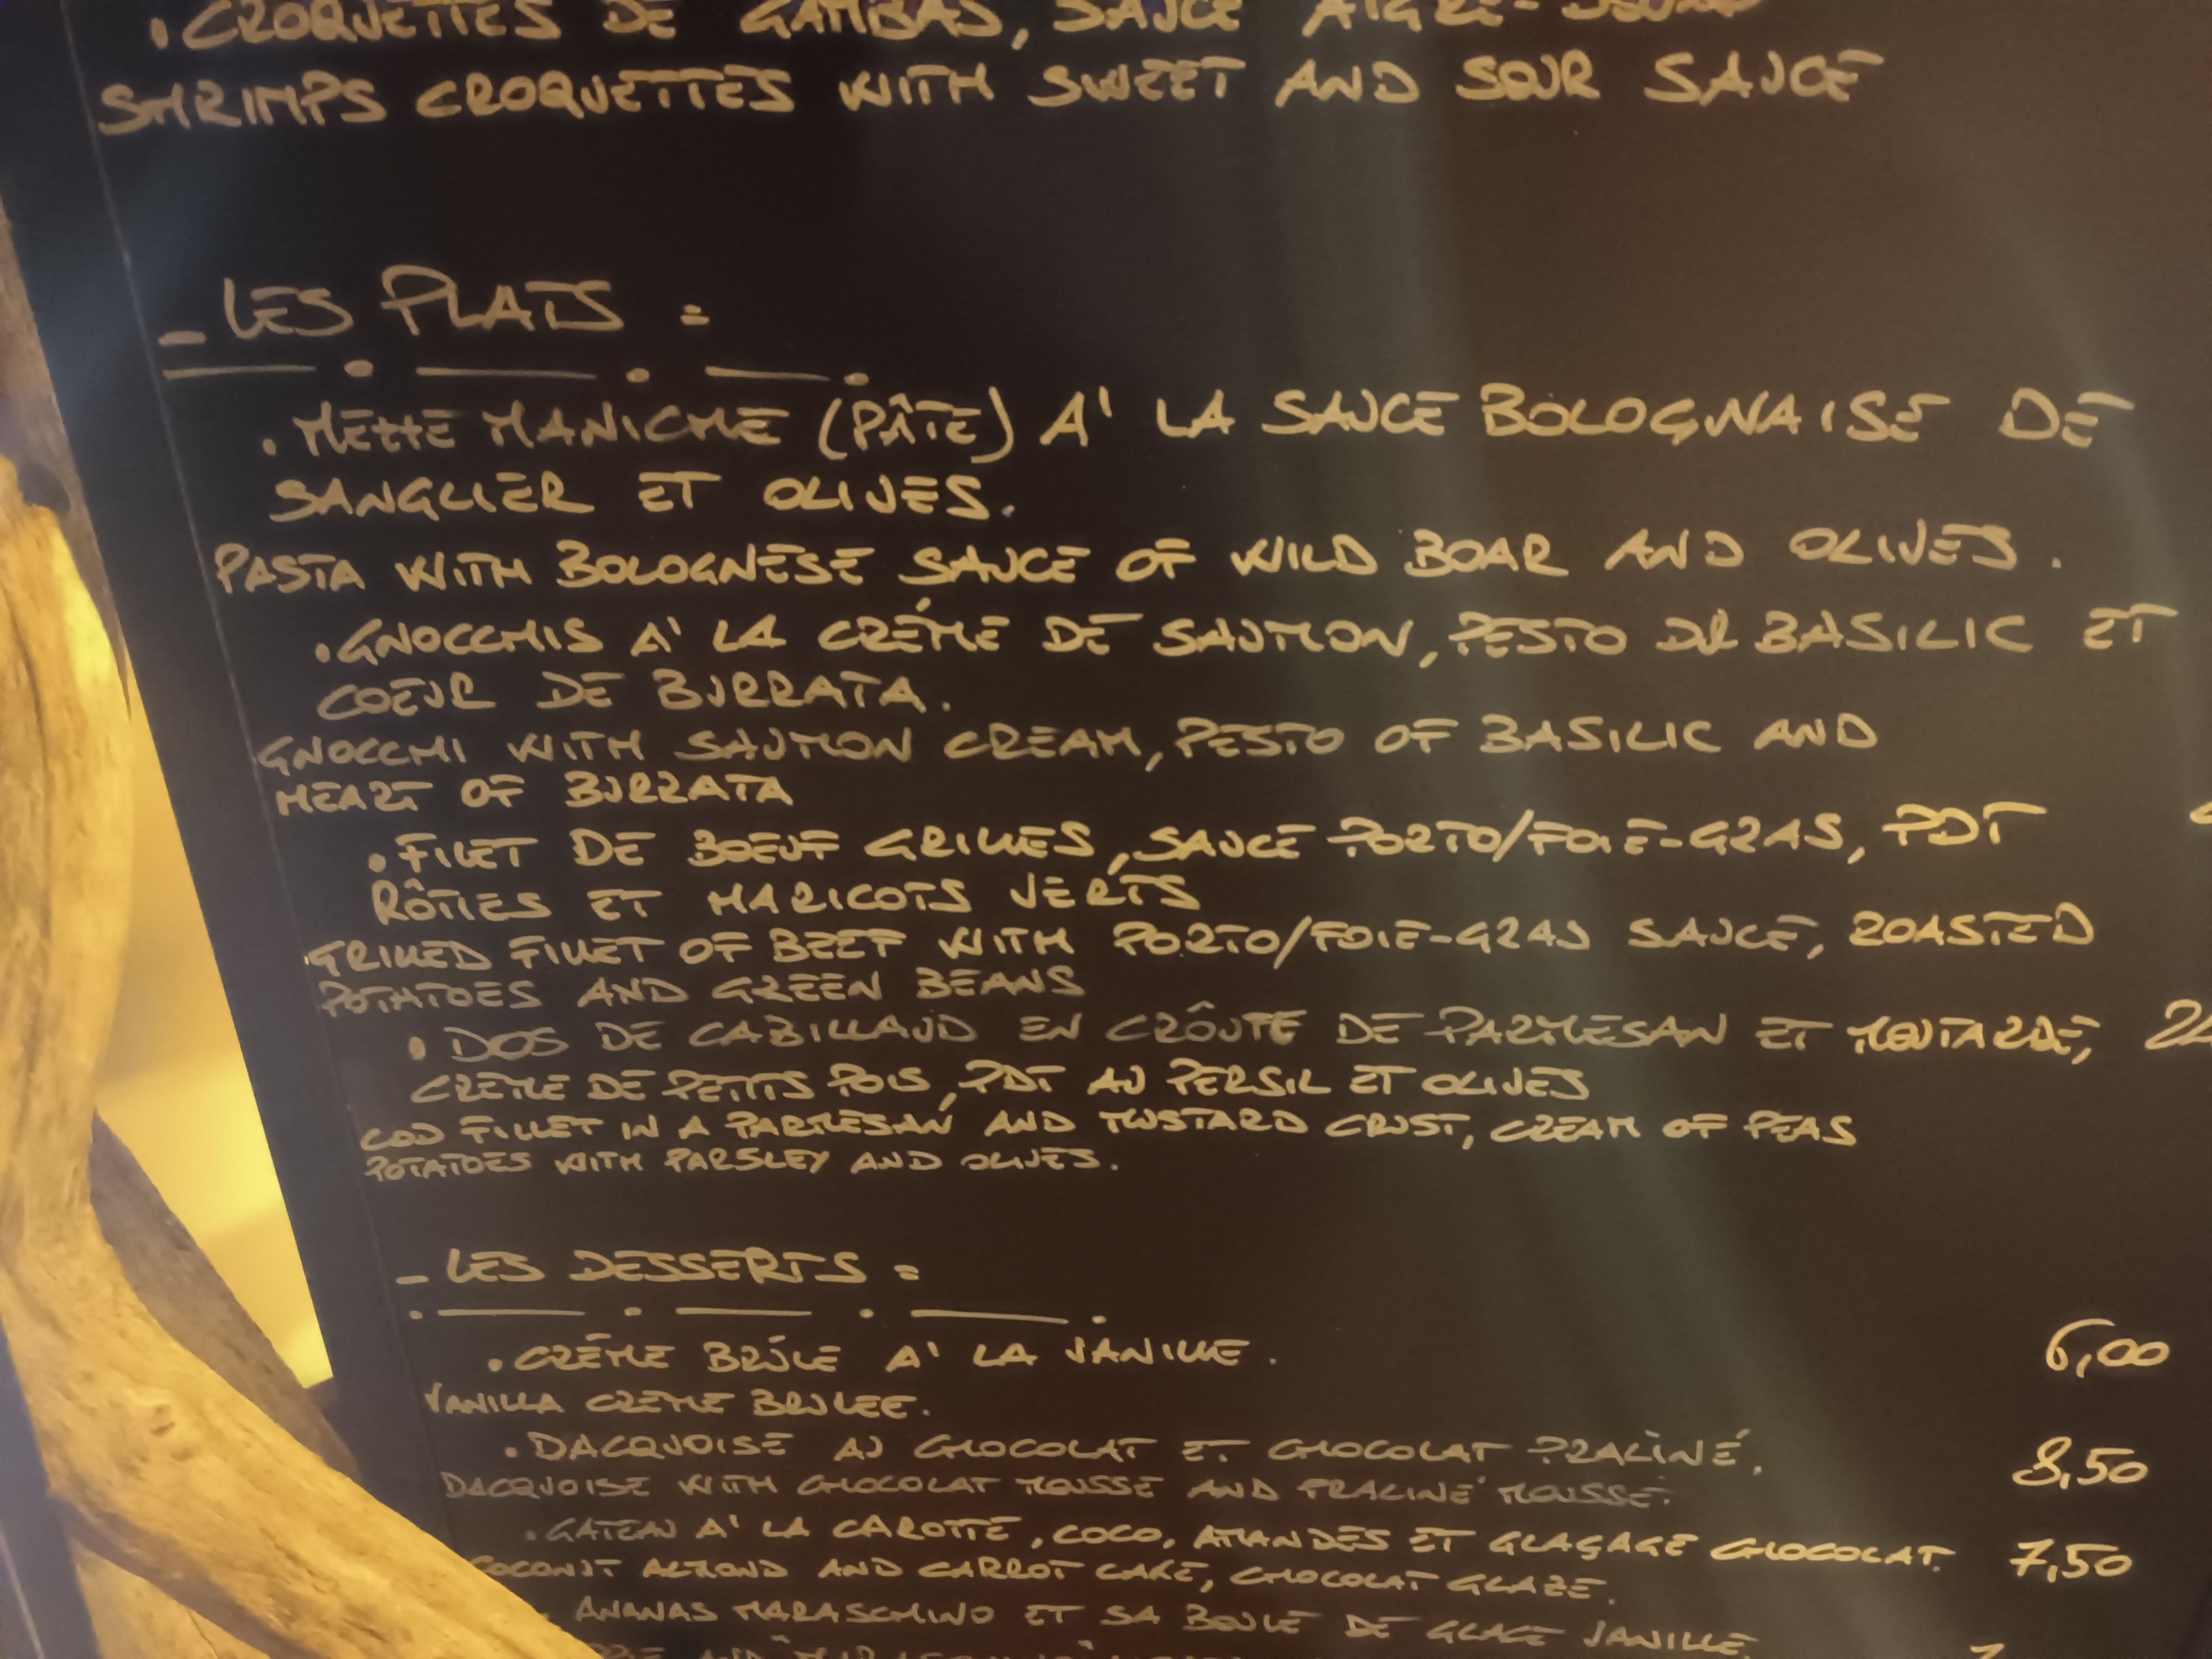 . CROQUETTES DE GAMBAS, SAUCE AIGRE-DOUCE
SHRIMPS CROQUETTES WITH SWEET AND SOUR SAUCE
- LES PLATS :
. METTE MANICHE (PÂTE) A' LA SAUCE BOLOGNAISE DE
SANGLIER ET OLIVES.
PASTA WITH BOLOGNESE SAUCE OF WILD BOAR AND OLIVES.
. GNOCCHIS A' LA CRÉME DE SAUMON, PESTO DE BASILIC ET
COEUR DE BURRATA.
GNOCCHI WITH SAUMON CREAM, PESTO OF BASILIC AND
HEART OF BURRATA
. FILET DE BOEUF GRILLES, SAUCE PORTO/FOIE-GRAS, PDT
RÔTIES ET HARICOTS VERTS
GRILLED FILLET OF BEEF WITH PORTO/FOIE-GRAS SAUCE, ROASTED
POTATOES AND GREEN BEANS
. DOS DE CABILLAUD EN CRÔUTE DE PARMESAN ET MOUTARDE,
CREME DE PETITS POIS, PDT AU PERSIL ET OLIVES
COD FILLET IN A PARMESAN AND MUSTARD CRUST, CREAM OF PEAS
POTATOES WITH PARSLEY AND OLIVES.
- LES DESSERTS :
. CRÊME BRÛLE A' LA VANILLE. 6,00
VANILLA CREME BRULEE.
. DACQUOISE AU CHOCOLAT ET CHOCOLAT PRALINÉ. 8,50
DACQUOISE WITH CHOCOLAT MOUSSE AND PRALINÉ MOUSSE.
. GATEAU A' LA CAROTTE, COCO, AMANDES ET GLAÇAGE CHOCOLAT. 7,50
COCONUT ALMOND AND CARROT CAKE, CHOCOLAT GLAZE.
. ANANAS MARASCHINO ET SA BOULE DE GLACE VANILLE.